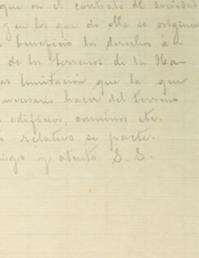 que en el contrato de sociedad
y en los que de ella se origina
beneficio los derechos á
de los terrenos de la Ha
limitación que la que
necesario hacer del terreno
edificios, caminos etc.
relativo se pacte.
migo y atento S. S.